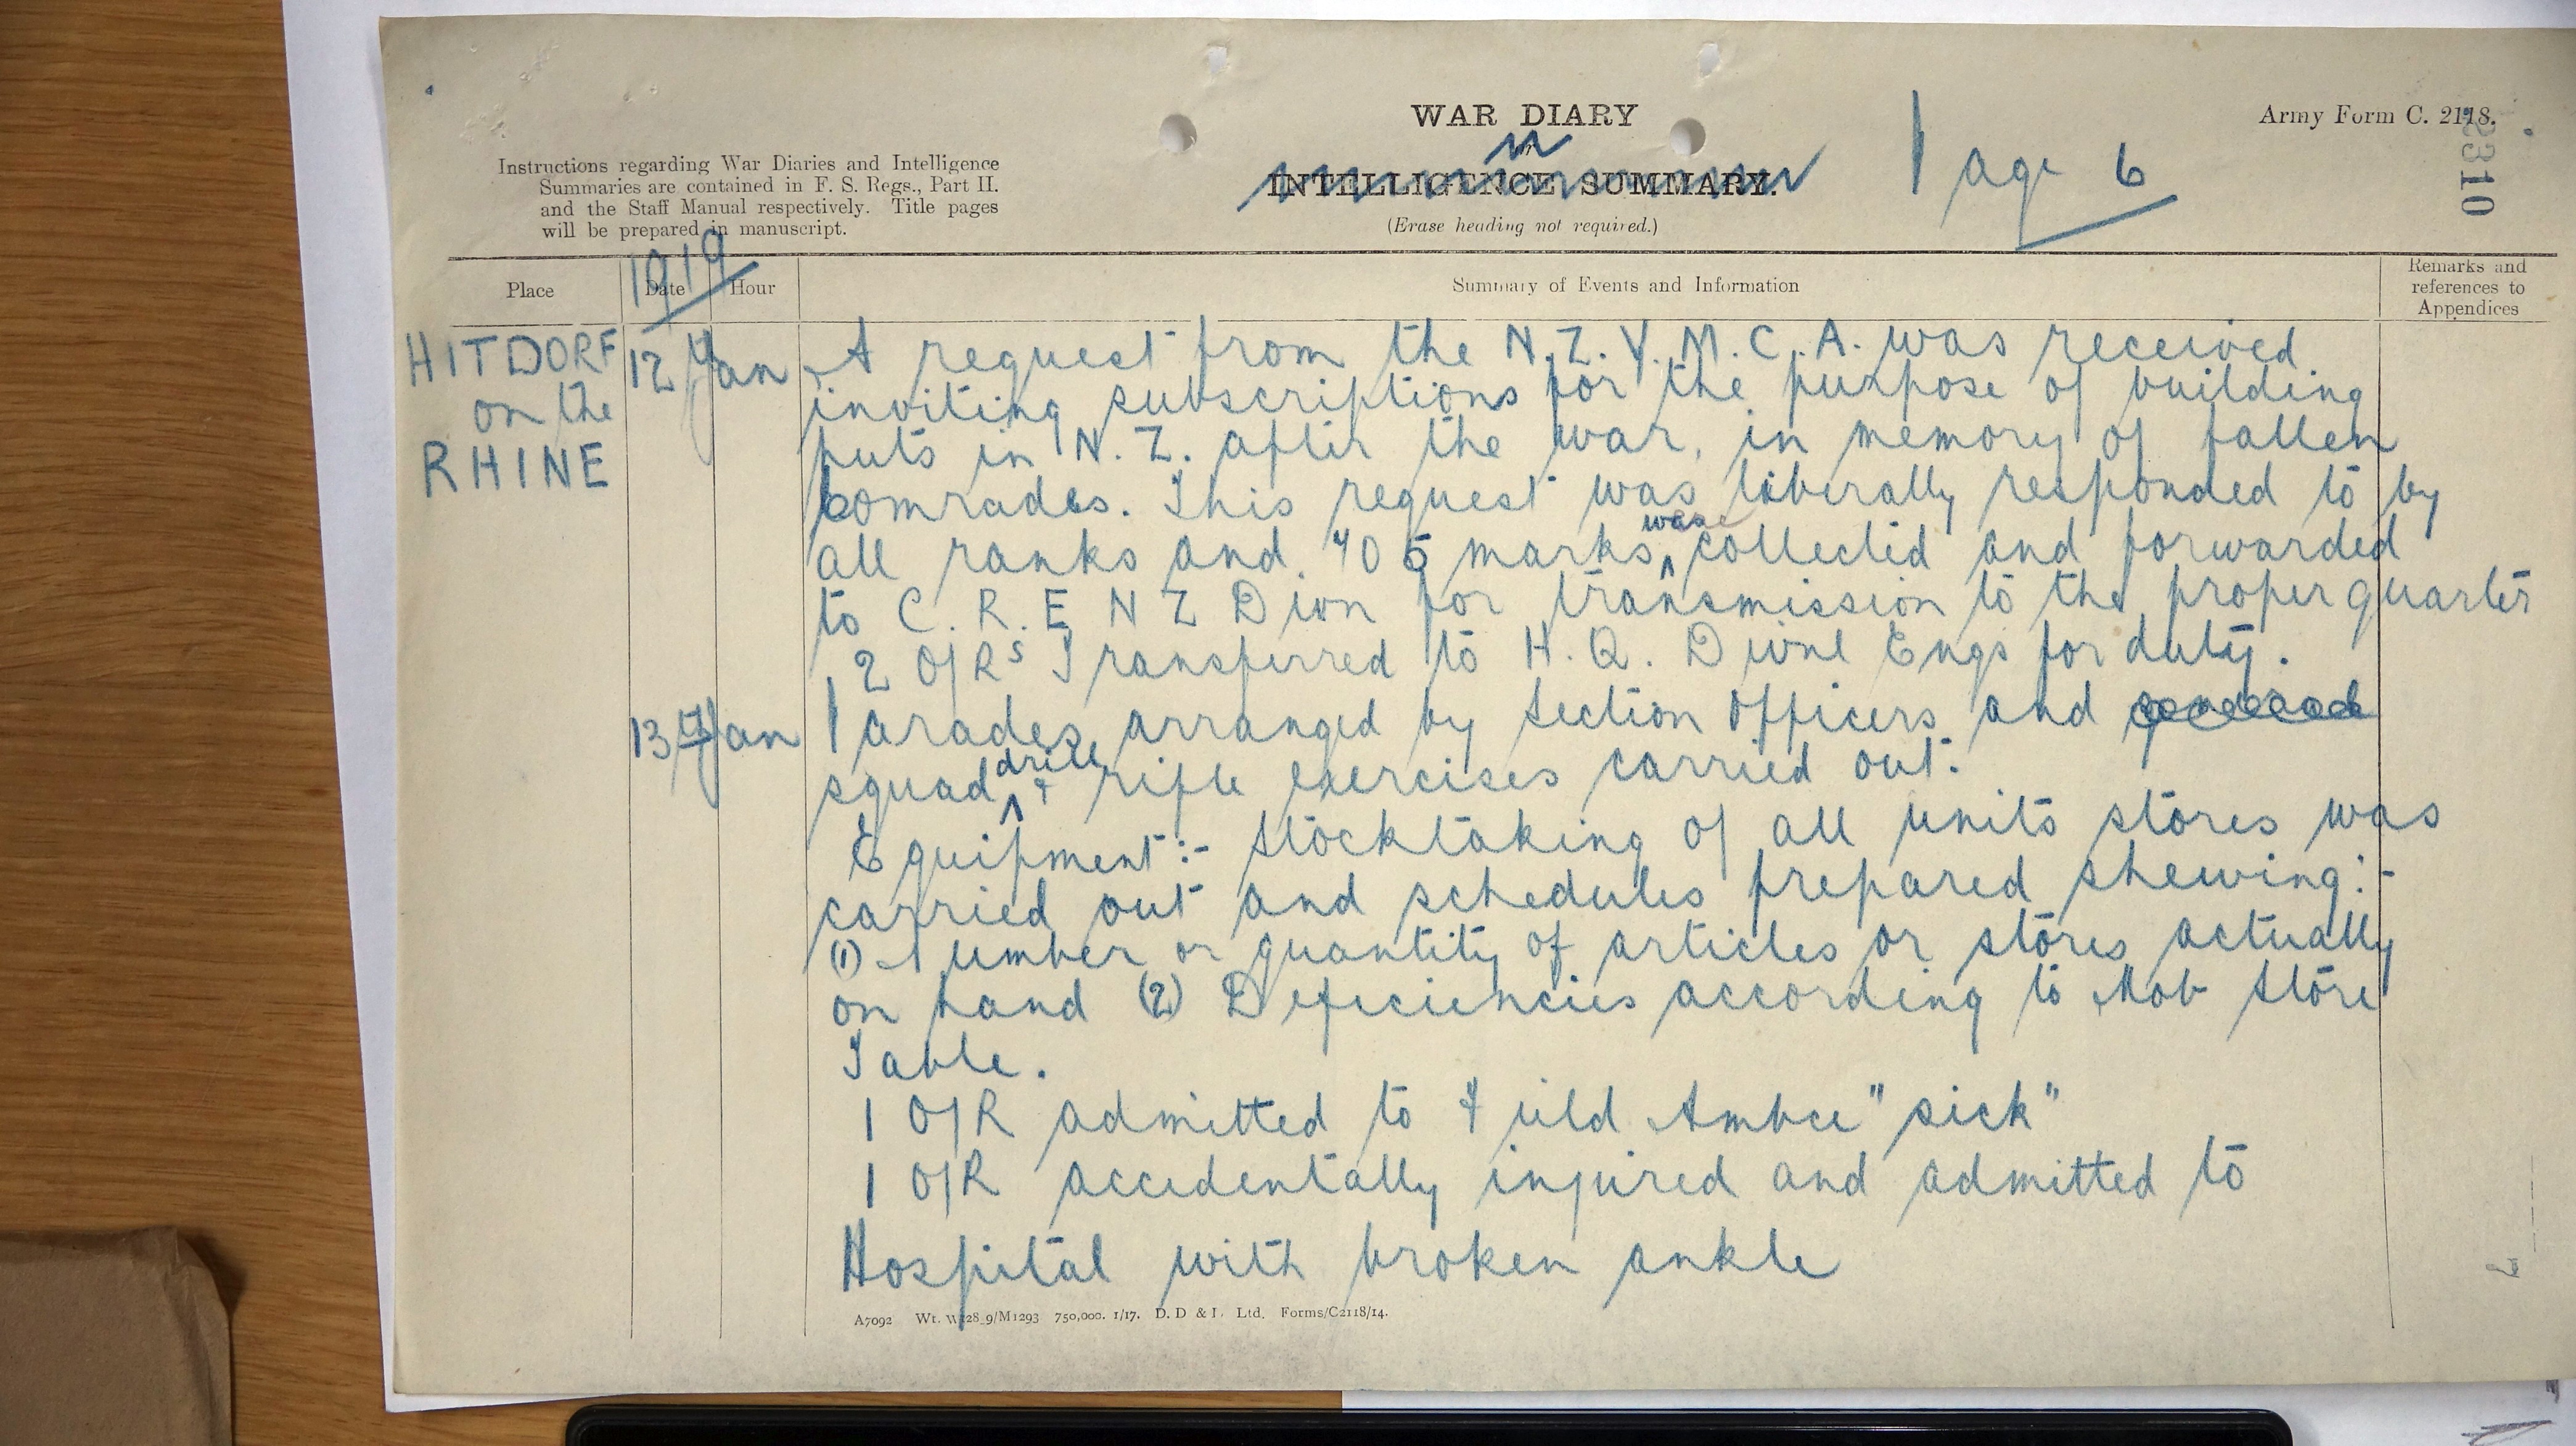 WAR DIARY
Army Form C. 2118.
2310
Instructions regarding War Diaries and Intelligence
Summaries are contained in F. S. Regs., Part II.
and the Staff Manual respectively. Title pages
will be prepared in manuscript.
INTELLIGENCE SUMMARY.
(Erase heading not required.)
Page 6
1919
Place Date Hour Summary of Events and Information Remarks and references to Appendices
HITDORF
on the
RHINE
12 Jan A request from the N.Z.Y.M.C.A. was received
inviting subscriptions for the purpose of building
huts in N.Z. after the war, in memory of fallen
comrades. This request was liberally responded to by
all ranks and 705 marks was collected and forwarded
to C.R.E N Z Divn for transmission to the proper quarter
2 O/Rs Transferred to H.Q. Divnl Engs for duty.
13 Jan Parades arranged by Section Officers and
squad drill & rifle exercises carried out.
Equipment:- Stocktaking of all units stores was
carried out and schedules prepared shewing:-
(1) Number or quantity of articles or stores actually
on hand (2) Deficiencies according to Mob Store
Table.
1 O/R admitted to Field Ambce "sick"
1 O/R accidentally injured and admitted to
Hospital with broken ankle
A7092 Wt. 750,000. 1/17. D. D & L. Ltd. Forms/C2118/14.